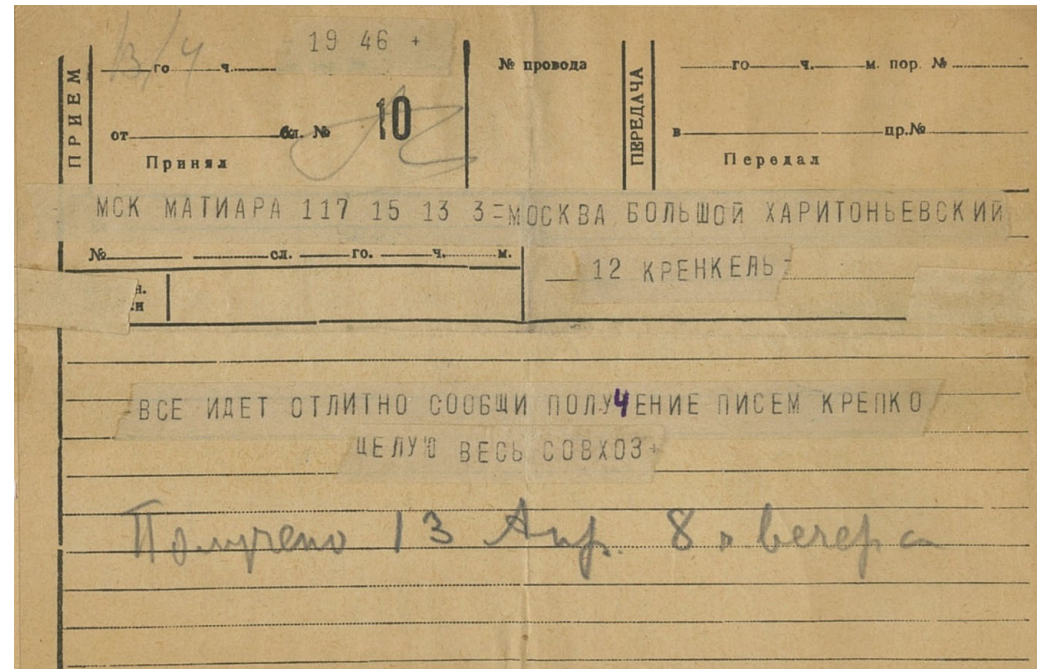 13/4
19 46 +
ПРИЕМ
го ч.
№ провода
ПЕРЕДАЧА
го ч. м. пор. №
от бл. № 10
в пр.№
Принял
Передал
МСК МАТИАРА 117 15 13 3=МОСКВА БОЛЬШОЙ ХАРИТОНЬЕВСКИЙ
№ сл. го. ч. м.
12 КРЕНКЕЛЬ=
ВСЕ ИДЕТ ОТЛИТНО СООБЩИ ПОЛУЧЕНИЕ ПИСЕМ КРЕПКО
ЦЕЛУЮ ВЕСЬ СОВХОЗ+
Получено 13 Апр. 8 ч вечера